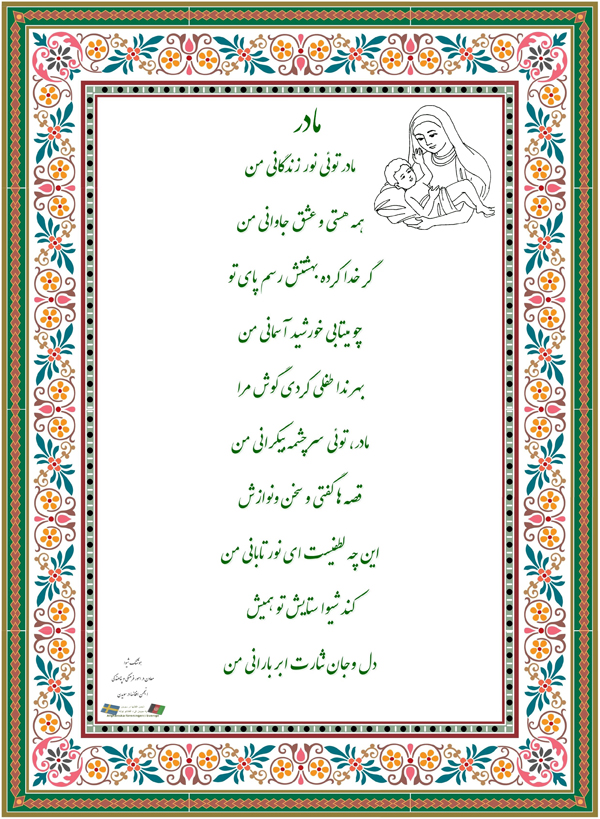 مادر
مادر توئی نور زندگانی من
همه هستی و عشق جاوانی من
گر خدا کرده بهشتش رسم پای تو
چو میتابی خورشید آسمانی من
بهر ندا طفلی کردی گوش مرا
مادر، توئی سرچشمه بیکرانی من
قصه ها گفتی و سخن ونوازش
این چه لطفیست ای نور تابانی من
کند شیوا ستایش تو همیش
دل وجان نثارت ابر بارانی من
هوشنگ شیوا
معاون در امور فرهنگی و
انجمن